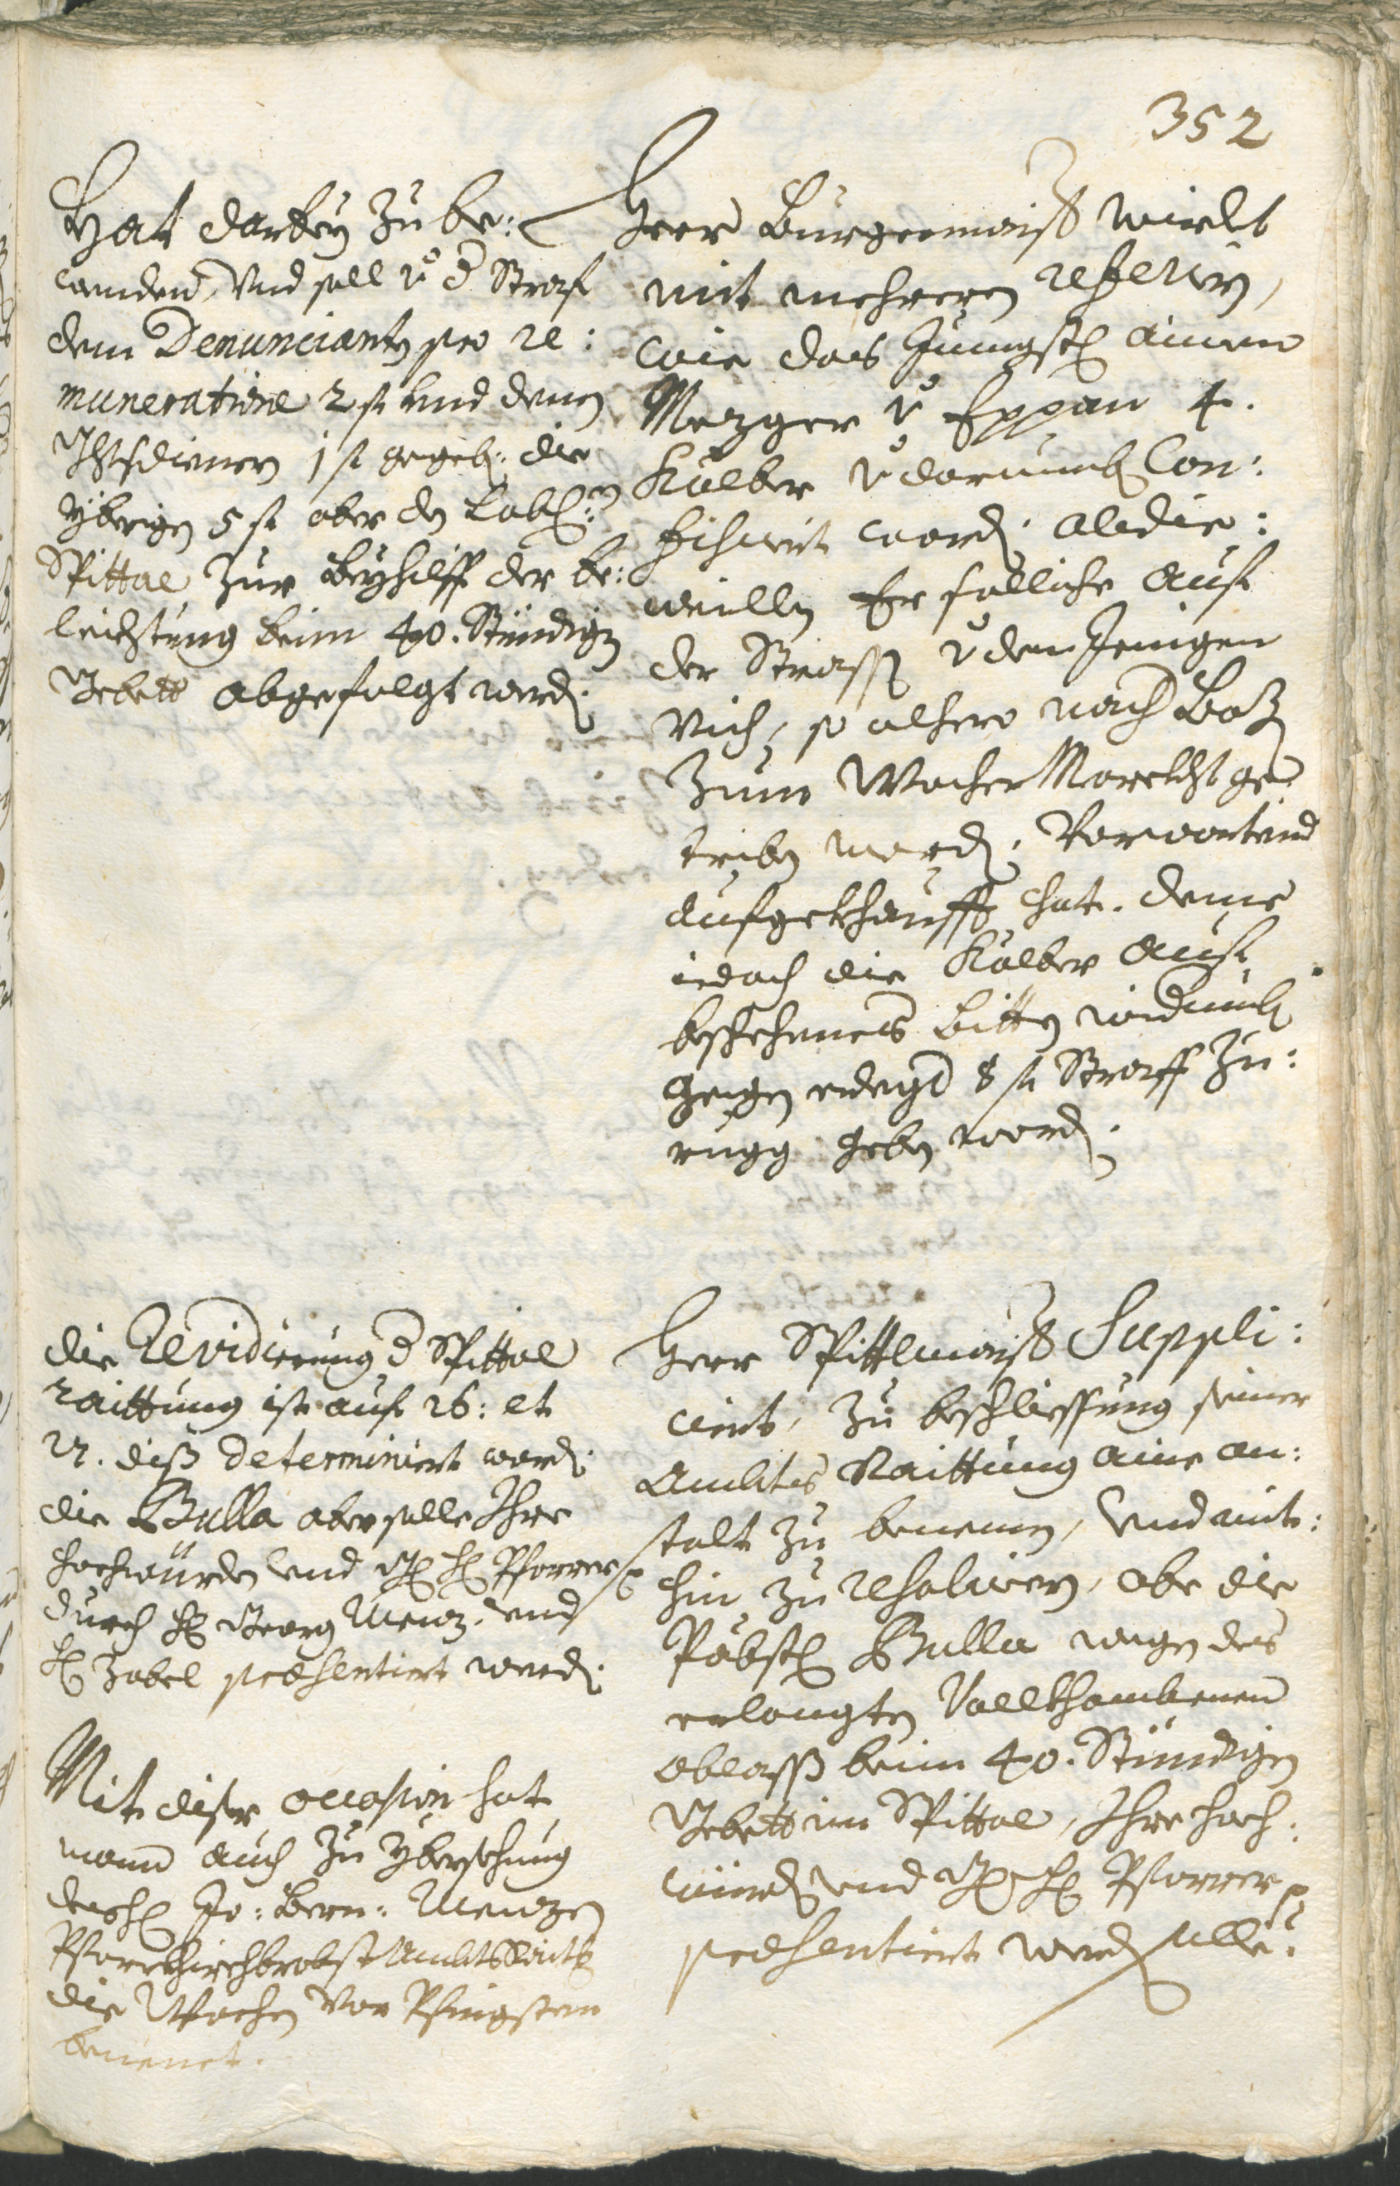 352
Hat darbey zu be:
wenden, Und soll v̊ d Straf
dem Denunciantn pro re:
muneratione 2 fl und denen
Ghtsdienern 1 fl gegeb: die
yberigen 5 fl aber dn Lobl:n
Spittal zur Beyhilff der be:
leichtung beim 40. Stündign
Gebett abgefolgt werdn.
Herr Burgermaistr wirdt
mit mehrerem referiren,
wie das Jüngstl ainem
Mezger v̊ Eppan 4.
Kälber v̊ darumb Con:
fisciert wordn. aldie:
weilln Er solliche auf
der Strassn v̊ den Jenigen
Vich, so alhero nach Boz
zum Wochen Marckht ge
tribn werdn. Vorwartend
aufgekhaufft hat. deme
iedoch die Kälber auf
beschehenes Bitten widumb
gegen erlegt 8 fl Straff zu:
rugg geben wordn.
die Revidierung d Spittal
raittung ist auf 26: et
27. diß determiniert wordn.
die Bulla aber solle Ihro
hochwürden und Gl hl Pfarrer
durch hl Georg Menz. und
hl Zobel præsentiert werdn.
Herr Spittlmaistr Suppli:
ciert, zu beschliessung seiner
Ambts Raittung aine an:
stalt zu benennen, und mit:
hin zu resolviern, obe die
Päbstl Bulla wegen des
erlangten Vollkhombenen
ablass beim 40. Stündigen
Gebett im Spittal, Ihro hoch:
würdn und Gl hl Pfarrer
præsentiert werdn solle?
Mit diser occasion hat
mann auch zu ybersehung
des hl Jo: Bern: Menzen
Pfarrkhirchbrobst Ambts Raitg
die Wochen vor Pfingsten
benenet.